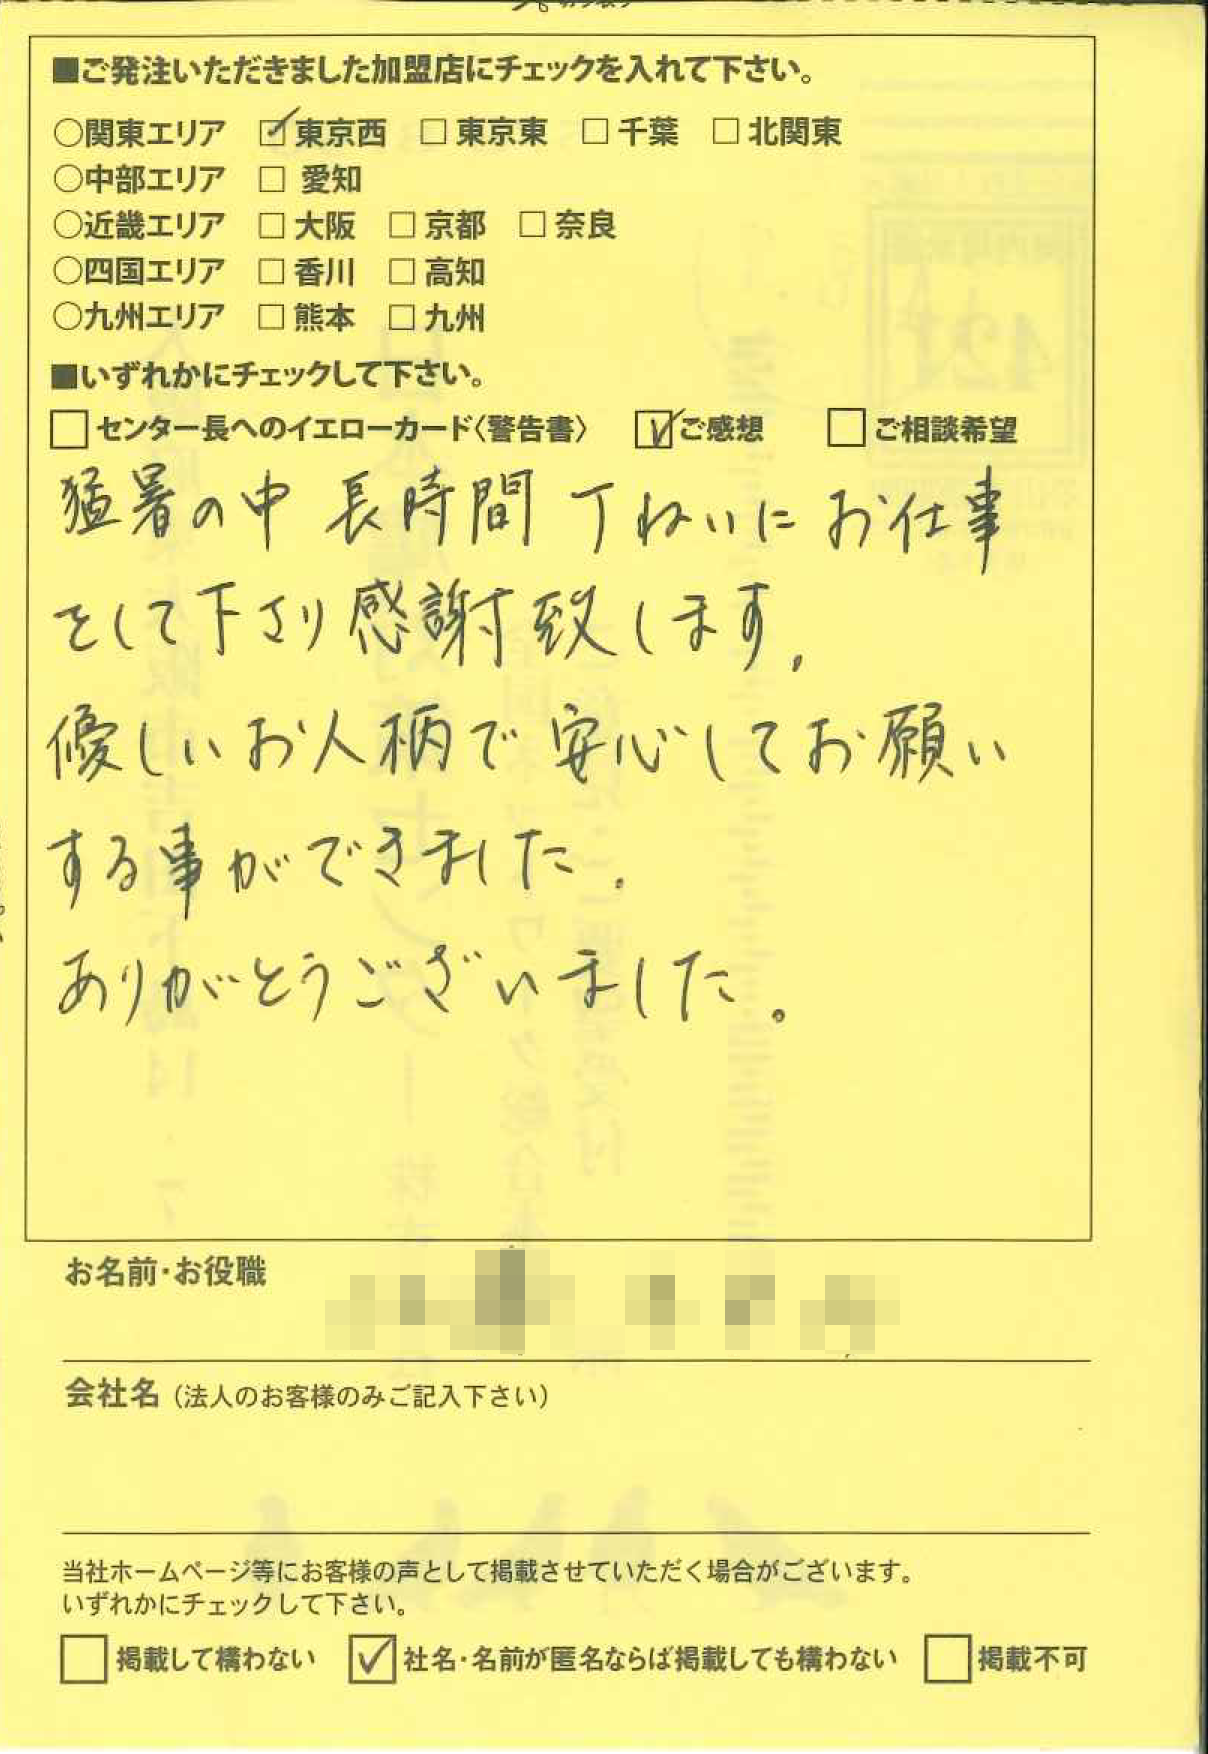 ■ご発注いただきました加盟店にチェックを入れて下さい。
○関東エリア ☑東京西 □東京東 □千葉 □北関東
○中部エリア □愛知
○近畿エリア □大阪 □京都 □奈良
○四国エリア □香川 □高知
○九州エリア □熊本 □九州
■いずれかにチェックして下さい。
□センター長へのイエローカード〈警告書〉 ☑ご感想 □ご相談希望
猛暑の中 長時間 丁ねいに お仕事
をして下さり 感謝致します。
優しいお人柄で 安心してお願い
する事ができました。
ありがとうございました。
お名前・お役職
会社名（法人のお客様のみご記入下さい）
当社ホームページ等にお客様の声として掲載させていただく場合がございます。
いずれかにチェックして下さい。
□掲載して構わない ☑社名・名前が匿名ならば掲載しても構わない □掲載不可